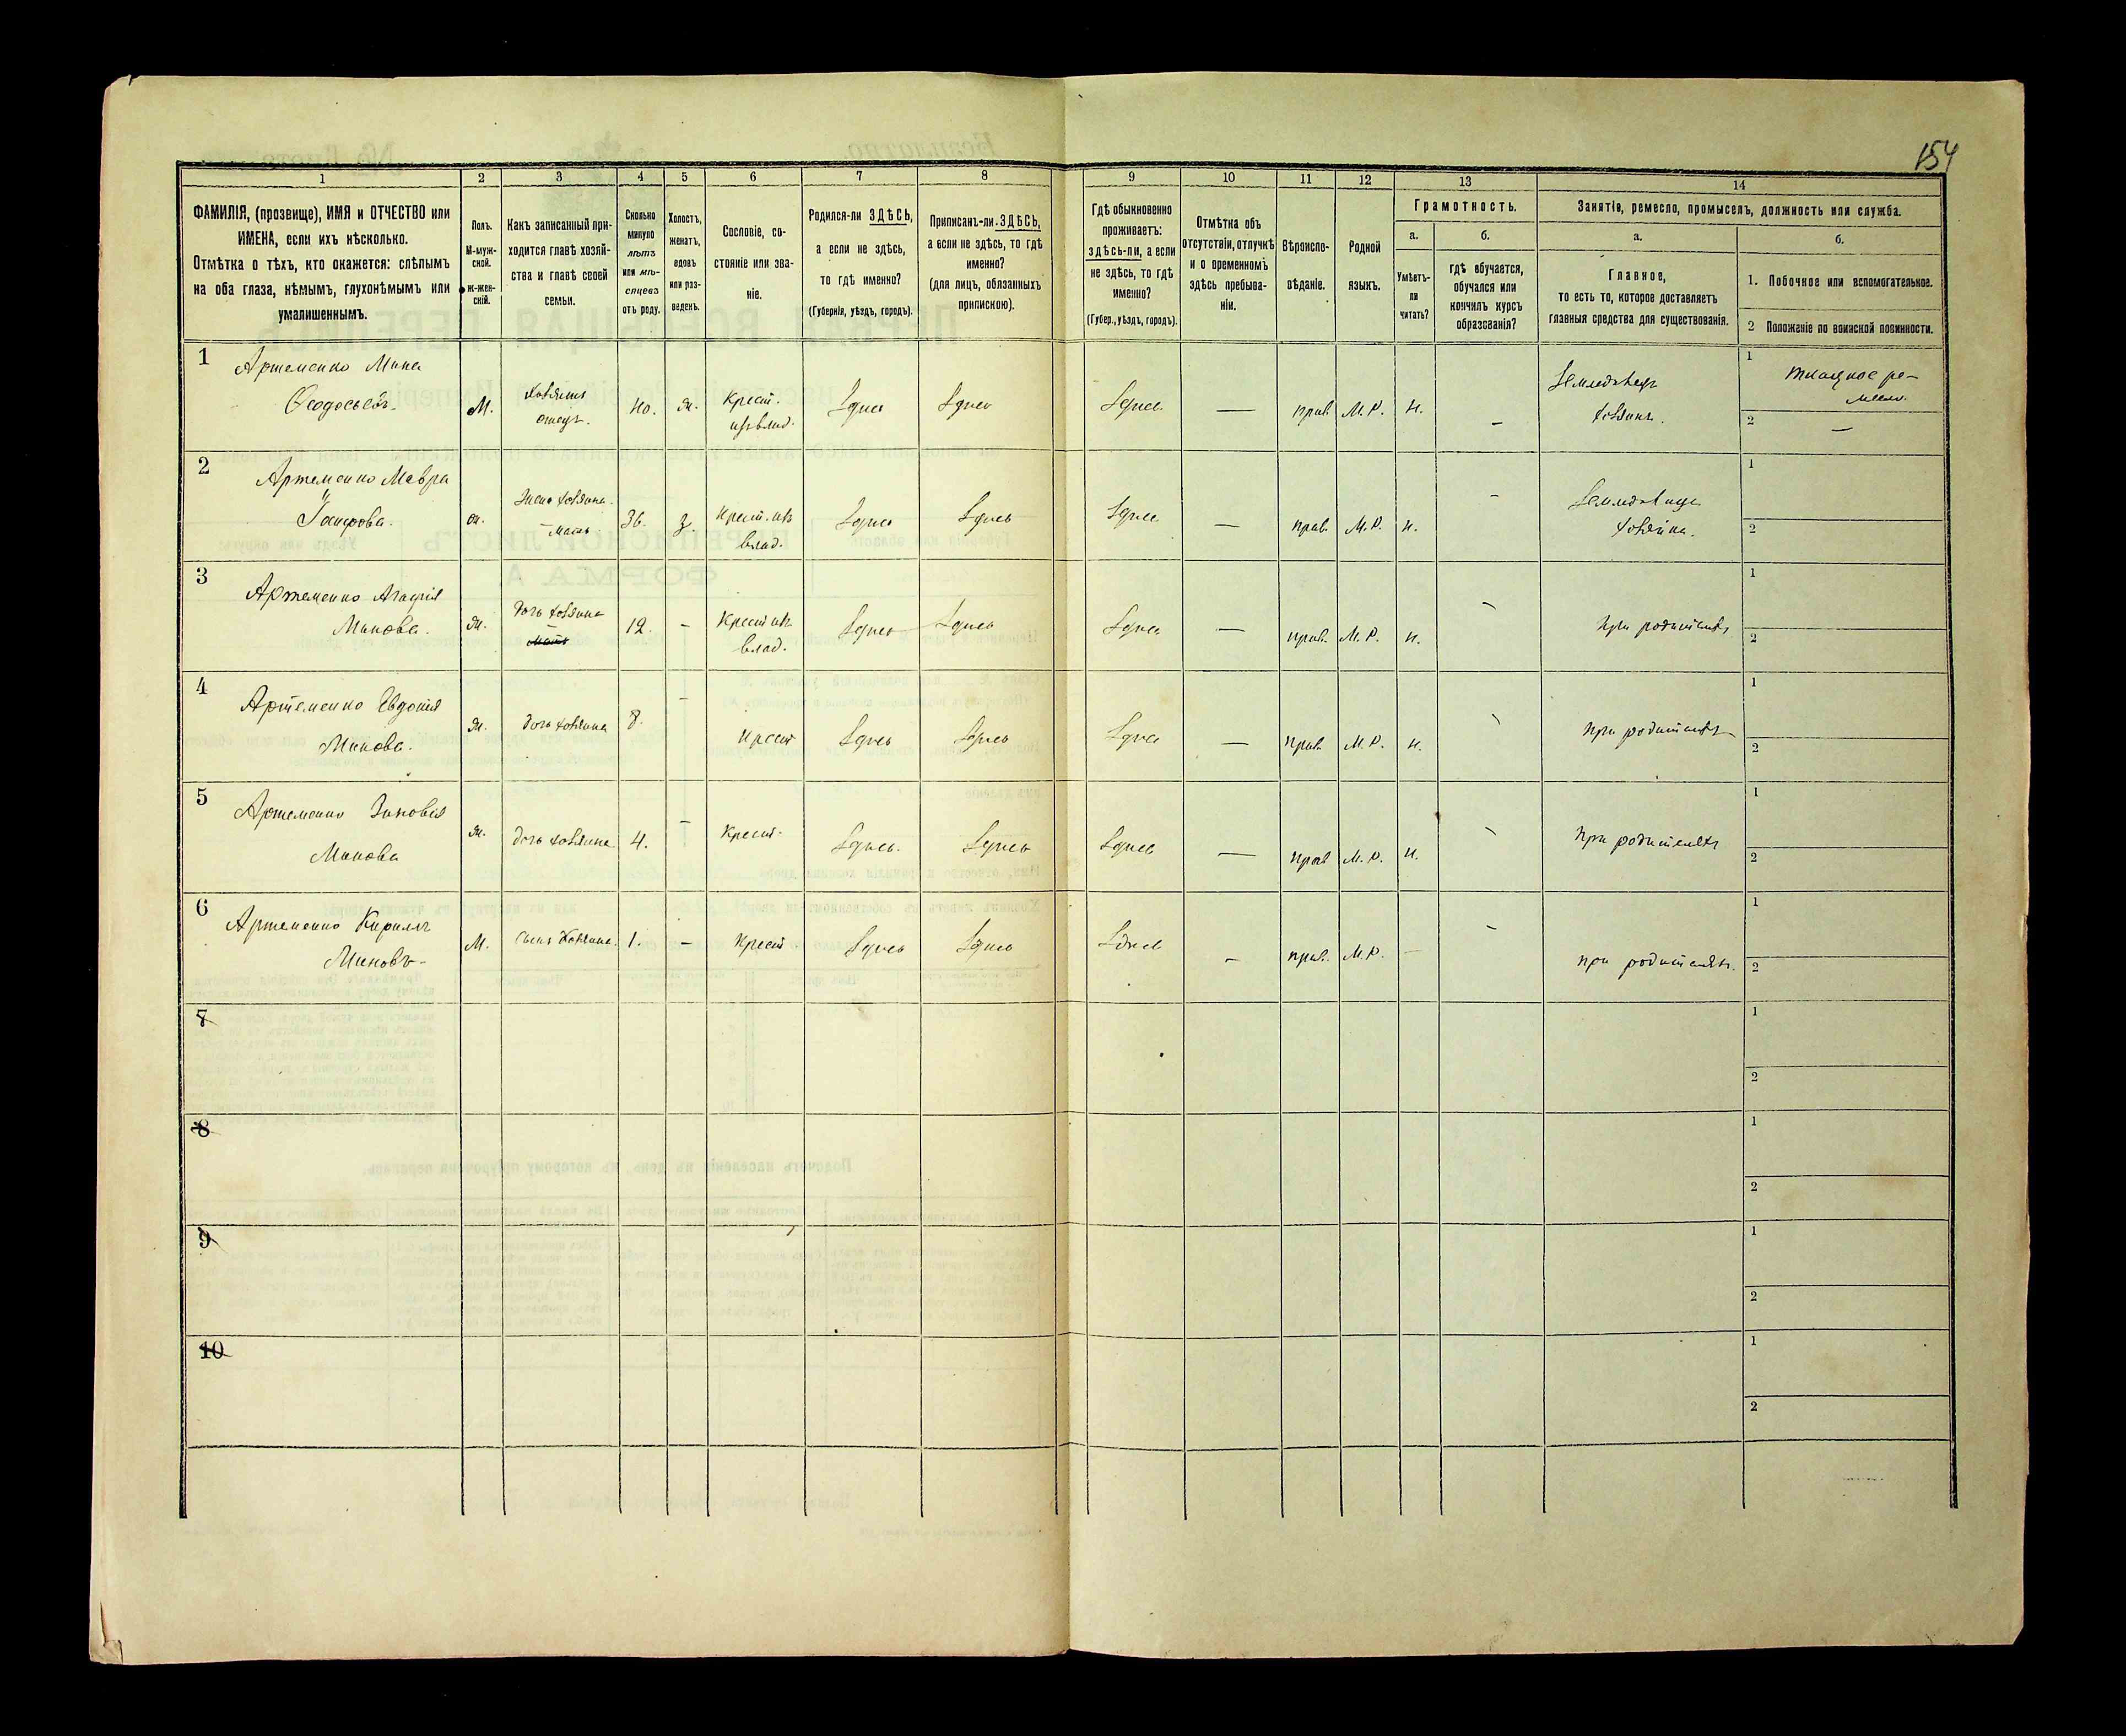 154
1 2 3 4 5 6 7 8 9 10 11 12 13 14
ФАМИЛІЯ, (прозвище), ИМЯ и ОТЧЕСТВО или
ИМЕНА, если ихъ нѣсколько.
Отмѣтка о тѣхъ, кто окажется: слѣпымъ
на оба глаза, нѣмымъ, глухонѣмымъ или
умалишеннымъ.
Полъ.
М-муж-
ской.
Ж-жен-
скій.
Какъ записанный при-
ходится главѣ хозяй-
ства и главѣ своей
семьи.
Сколько
минуло
лѣтъ
или мѣ-
сяцевъ
отъ роду.
Холостъ,
женатъ,
вдовъ
или раз-
веденъ.
Сословіе, со-
стояніе или зва-
ніе.
Родился-ли ЗДѢСЬ,
а если не здѣсь,
то гдѣ именно?
(Губернія, уѣздъ, городъ).
Приписанъ-ли ЗДѢСЬ,
а если не здѣсь, то гдѣ
именно?
(для лицъ, обязанныхъ
припискою).
Гдѣ обыкновенно
проживаетъ:
здѣсь-ли, а если
не здѣсь, то гдѣ
именно?
(Губер., уѣздъ, городъ).
Отмѣтка объ
отсутствіи, отлучкѣ
и о временномъ
здѣсь пребыва-
ніи.
Вѣроиспо-
вѣданіе.
Родной
языкъ.
Грамотность.
а.
Умѣетъ-
ли
читать?
б.
гдѣ обучается,
обучался или
кончилъ курсъ
образованія?
Занятіе, ремесло, промыселъ, должность или служба.
а.
Главное,
то есть то, которое доставляетъ
главныя средства для существованія.
б.
1. Побочное или вспомогательное.
2 Положеніе по воинской повинности.
1 Артеменко Мина
Ѳеодосьевъ М. хозяинъ отецъ. 40. ж. Крест. изъ влад. Здѣсь Здѣсь Здѣсь — прав. М.Р. н. — Земледѣлецъ хозяинъ. 1 ткацкое ре-
месло.
2 —
2 Артеменко Мавра
ж. Жена хозяина - мать. 36. з. Крест. изъ влад. Здѣсь Здѣсь Здѣсь — прав. М.Р. н. — хозяйка. 1
2
3 Артеменко Агафія
Минова. ж. Дочь хозяина 12. - Крест. изъ влад. Здѣсь Здѣсь Здѣсь — прав. М.Р. н. - При родителяхъ 1
2
4 Артеменко Евдокія
Минова. ж. Дочь хозяина 8. - Крест Здѣсь Здѣсь Здѣсь — прав М.Р. н. - При родителяхъ 1
2
5 Артеменко Зиновія
Минова ж. Дочь хозяина 4. - Крест. Здѣсь. Здѣсь Здѣсь — прав М.Р. н. - При родителяхъ 1
2
6 Артеменко Кирилъ
Миновъ М. Сынъ хозяина. 1. - Крест Здѣсь Здѣсь Здѣсь - прав. М.Р. - - При родителяхъ. 1
2
7 1
2
8 1
2
9 1
2
10 1
2